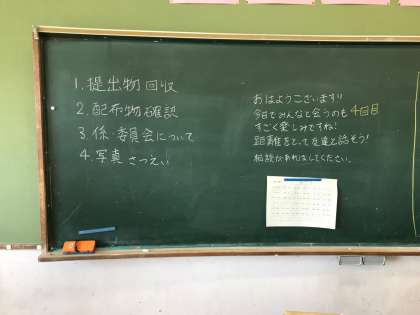 1.提出物回収
2.配布物確認
3.係・委員会について
4.写真さつえい
おはようございます!!
今日でみんなと会うのも4回目
すごく楽しみですね!
距離をとって友達と話そう!
相談があればしてください。